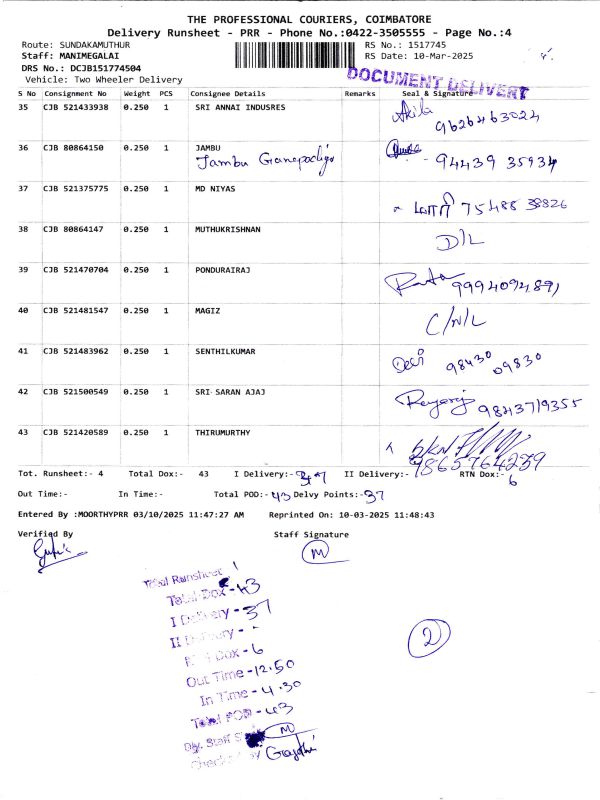 THE PROFESSIONAL COURIERS, COIMBATORE
Delivery Runsheet - PRR - Phone No.:0422-3505555 - Page No.:4
Route: SUNDAKAMUTHUR RS No.: 1517745
Staff: MANIMEGALAI RS Date: 10-Mar-2025
DRS No.: DCJB151774504
DOCUMENT DELIVERY
Vehicle: Two Wheeler Delivery
S No Consignment No Weight PCS Consignee Details Remarks Seal & Signature
35 CJB 521433938 0.250 1 SRI ANNAI INDUSRES Akila
9626463024
36 CJB 80864150 0.250 1 JAMBU
Jambu 94439 35934
37 CJB 521375775 0.250 1 MD NIYAS
75488 38826
38 CJB 80864147 0.250 1 MUTHUKRISHNAN
D/L
39 CJB 521470704 0.250 1 PONDURAIRAJ
9994094891
40 CJB 521481547 0.250 1 MAGIZ
C/N/L
41 CJB 521483962 0.250 1 SENTHILKUMAR
98430 09830
42 CJB 521500549 0.250 1 SRI SARAN AJAJ
9843719355
43 CJB 521420589 0.250 1 THIRUMURTHY
9865764239
Tot. Runsheet:- 4 Total Dox:- 43 I Delivery:- 37 II Delivery:- RTN Dox:- 6
Out Time:- In Time:- Total POD:- 43 Delvy Points:- 37
Entered By :MOORTHYPRR 03/10/2025 11:47:27 AM Reprinted On: 10-03-2025 11:48:43
Verified By Staff Signature
M
Total Runsheet
Total Dox - 43
I Delivery - 37
II Delivery -
Dox - 6
Out Time - 12.50
In Time - 4.30
Total POD - 43
Dly. Staff M
By Gayathri
2